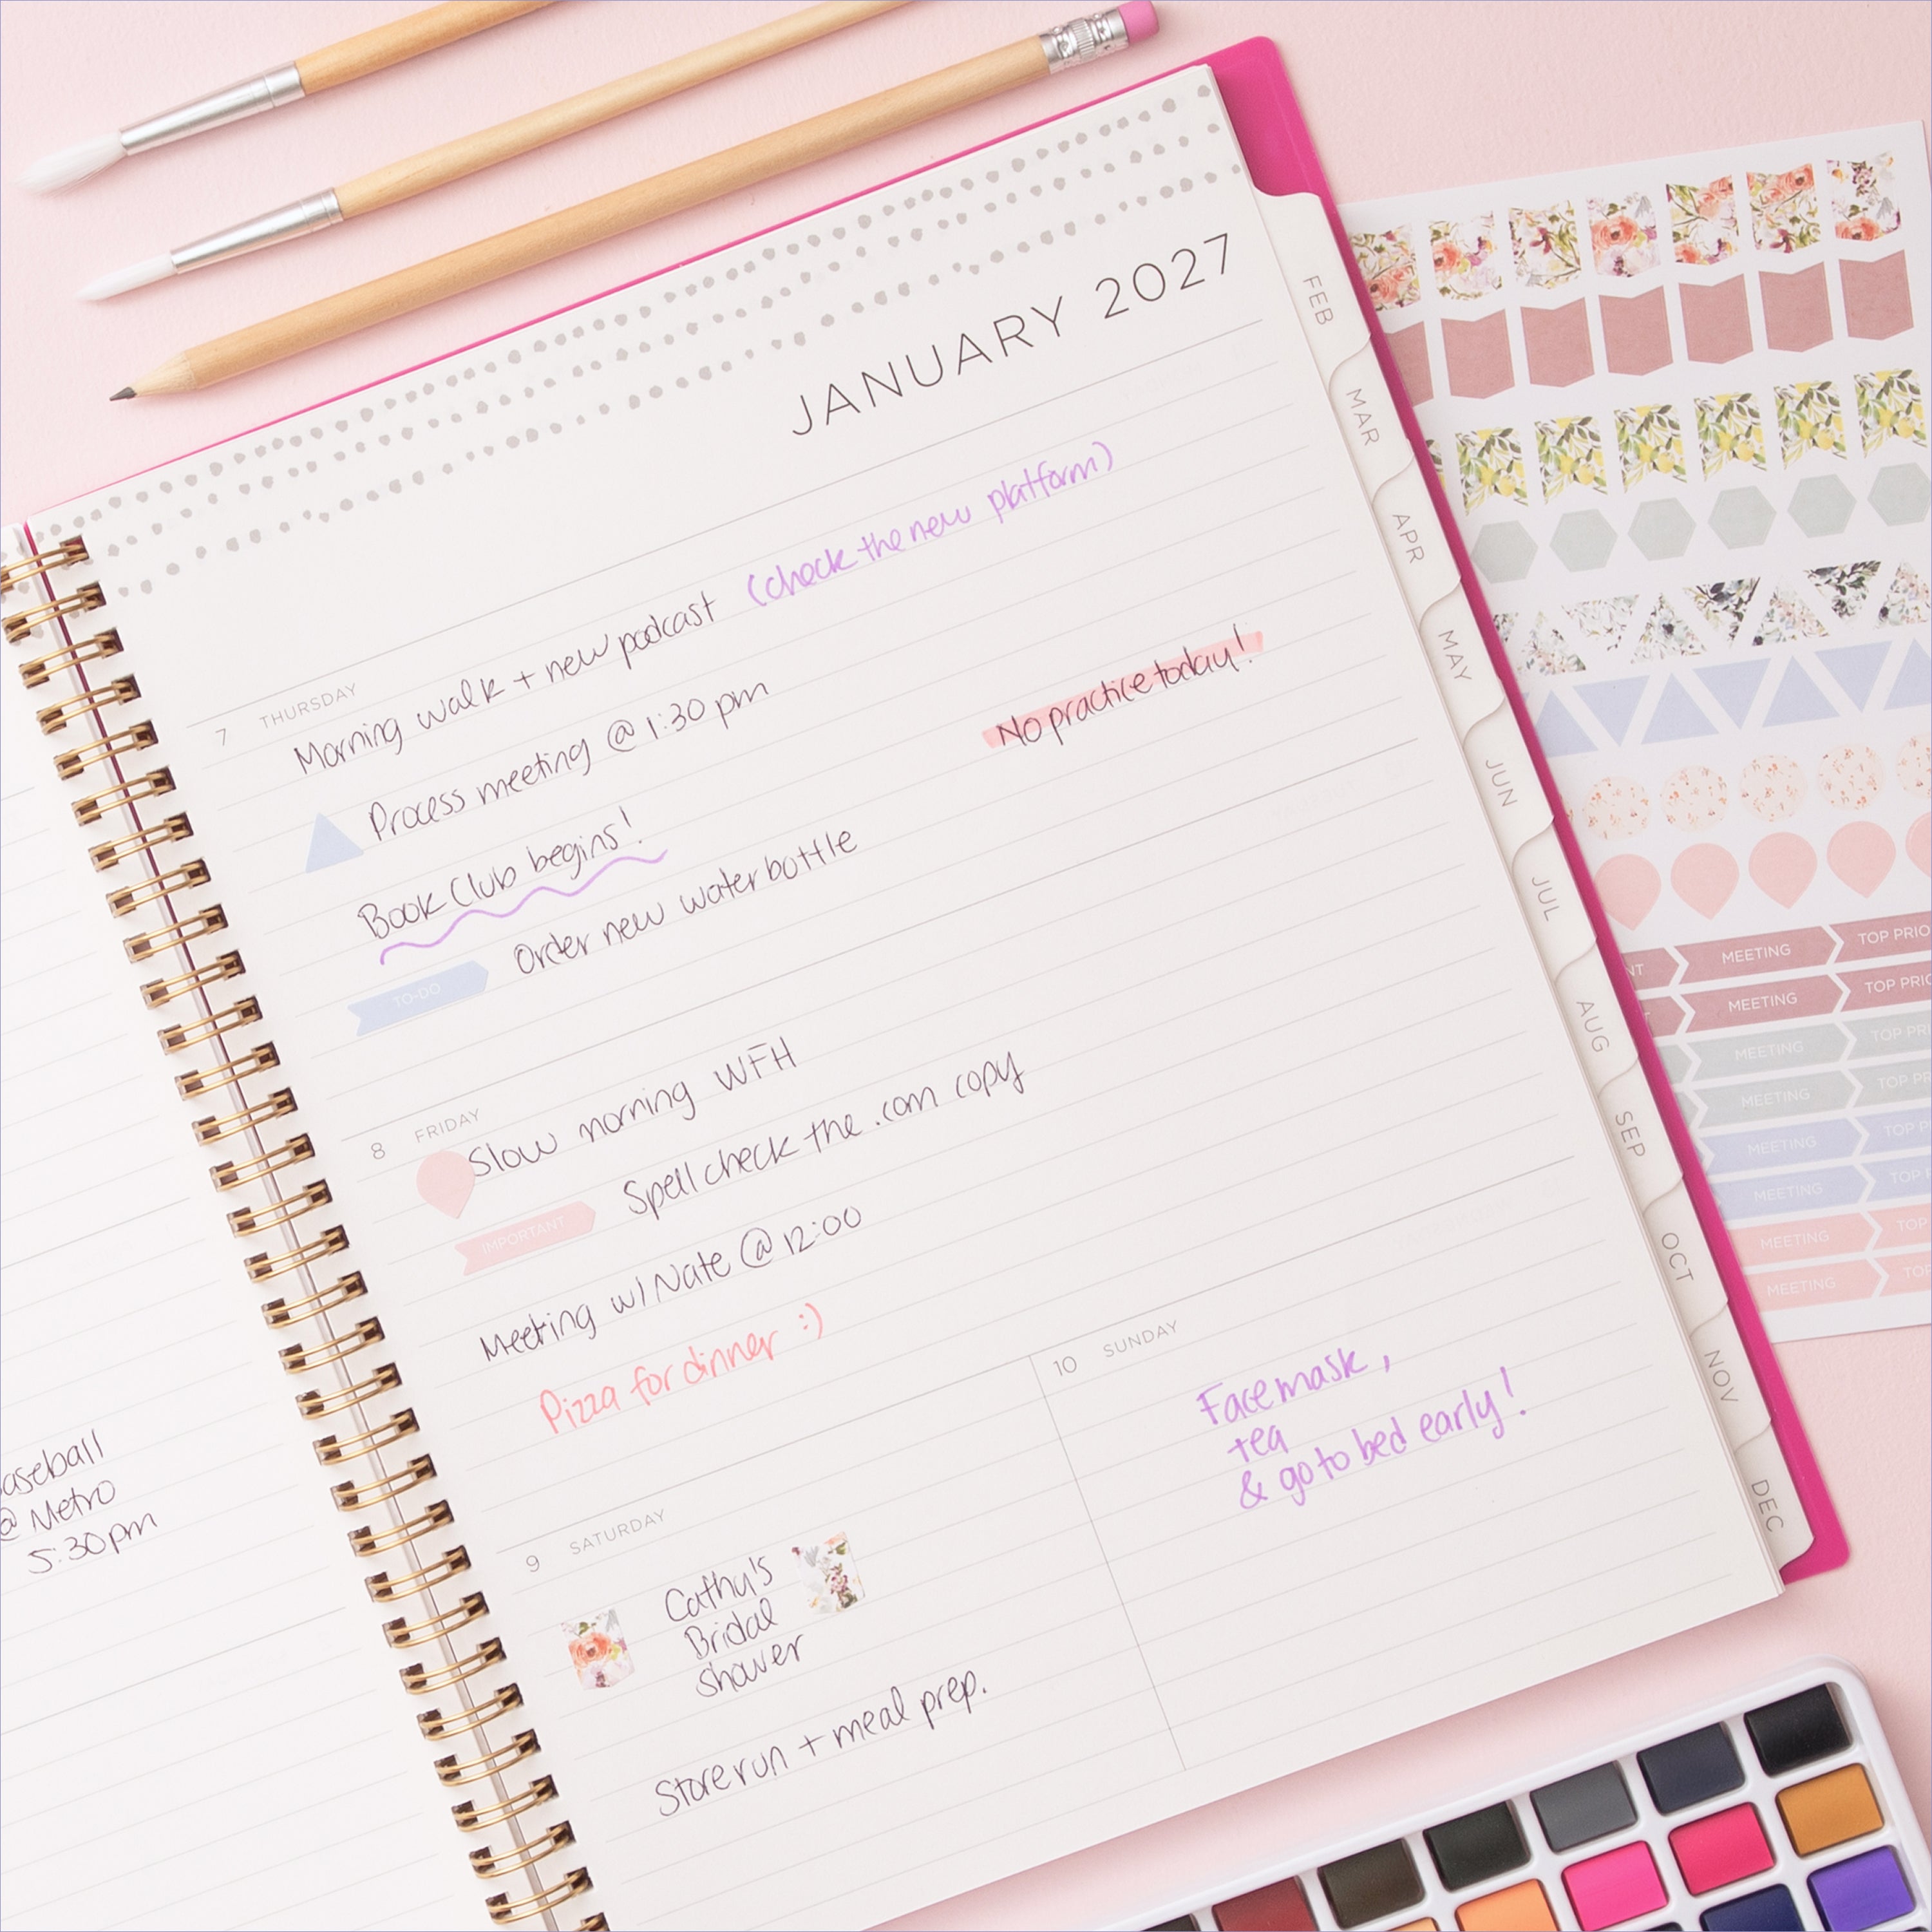 JANUARY 2027
7 THURSDAY
Morning walk + new podcast (check the new platform)
Process meeting @ 1:30 pm
No practice today!
Book Club begins!
TO-DO Order new water bottle
8 FRIDAY
Slow morning WFH
IMPORTANT Spell check the .com copy
Meeting w/ Nate @ 12:00
Pizza for dinner :)
9 SATURDAY
Cathy's
Bridal
shower
Store run + meal prep.
10 SUNDAY
Face mask,
tea
& go to bed early!
@ Metro
5:30pm
FEB
MAR
APR
MAY
JUN
JUL
AUG
SEP
OCT
NOV
DEC
MEETING TOP
MEETING TOP
MEETING TOP
MEETING TOP
MEETING TOP
MEETING TOP
MEETING TOP
MEETING TOP